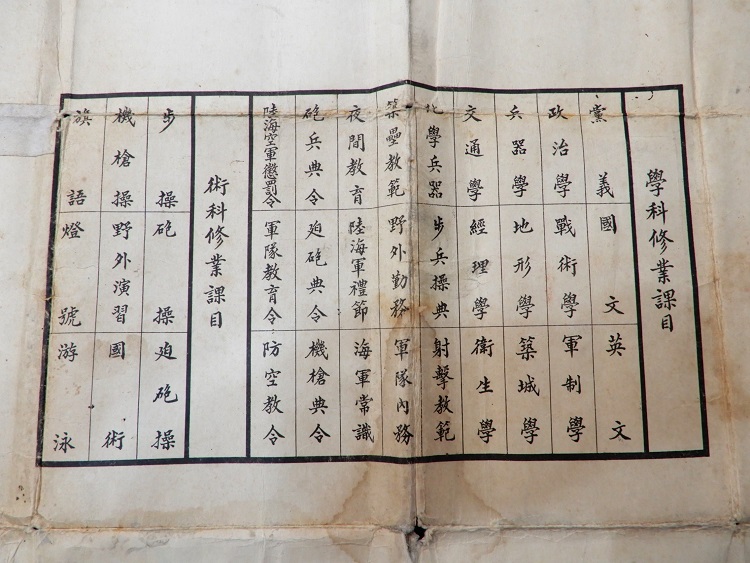 學科修業課目
黨義 國文 英文
政治學 戰術學 軍制學
兵器學 地形學 築城學
交通學 經理學 衛生學
化學兵器 步兵操典 射擊教範
築壘教範 野外勤務 軍隊內務
夜間教育 陸海軍禮節 海軍常識
砲兵典令 迫砲典令 機槍典令
陸海空軍懲罰令 軍隊教育令 防空教令
術科修業課目
步操 砲操 迫砲操
機槍操 野外演習 國術
旗語 燈號 游泳